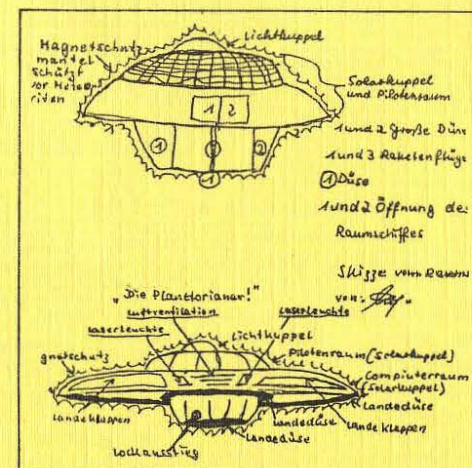 Lichtkuppel
Magnetschutz
mantel
schützt
vor Meteo-
riten
Solarkuppel
und Pilotenraum
1 2
1 und 2 große Düse
1 und 3 Raketenflüge
① Düse
① ② 
1
1 und 2 Öffnung de
Raumschiffes
Skizze vom
von:
„Die Planetorianer!"
Luftventilation
Laserleuchte
Laserleuchte
Lichtkuppel
gnetschutz
Pilotenraum (Solarkuppel)
Computerraum
(Solarkuppel)
Landedüse
Landeklappen
Landedüse
Landeklappen
Landedüse